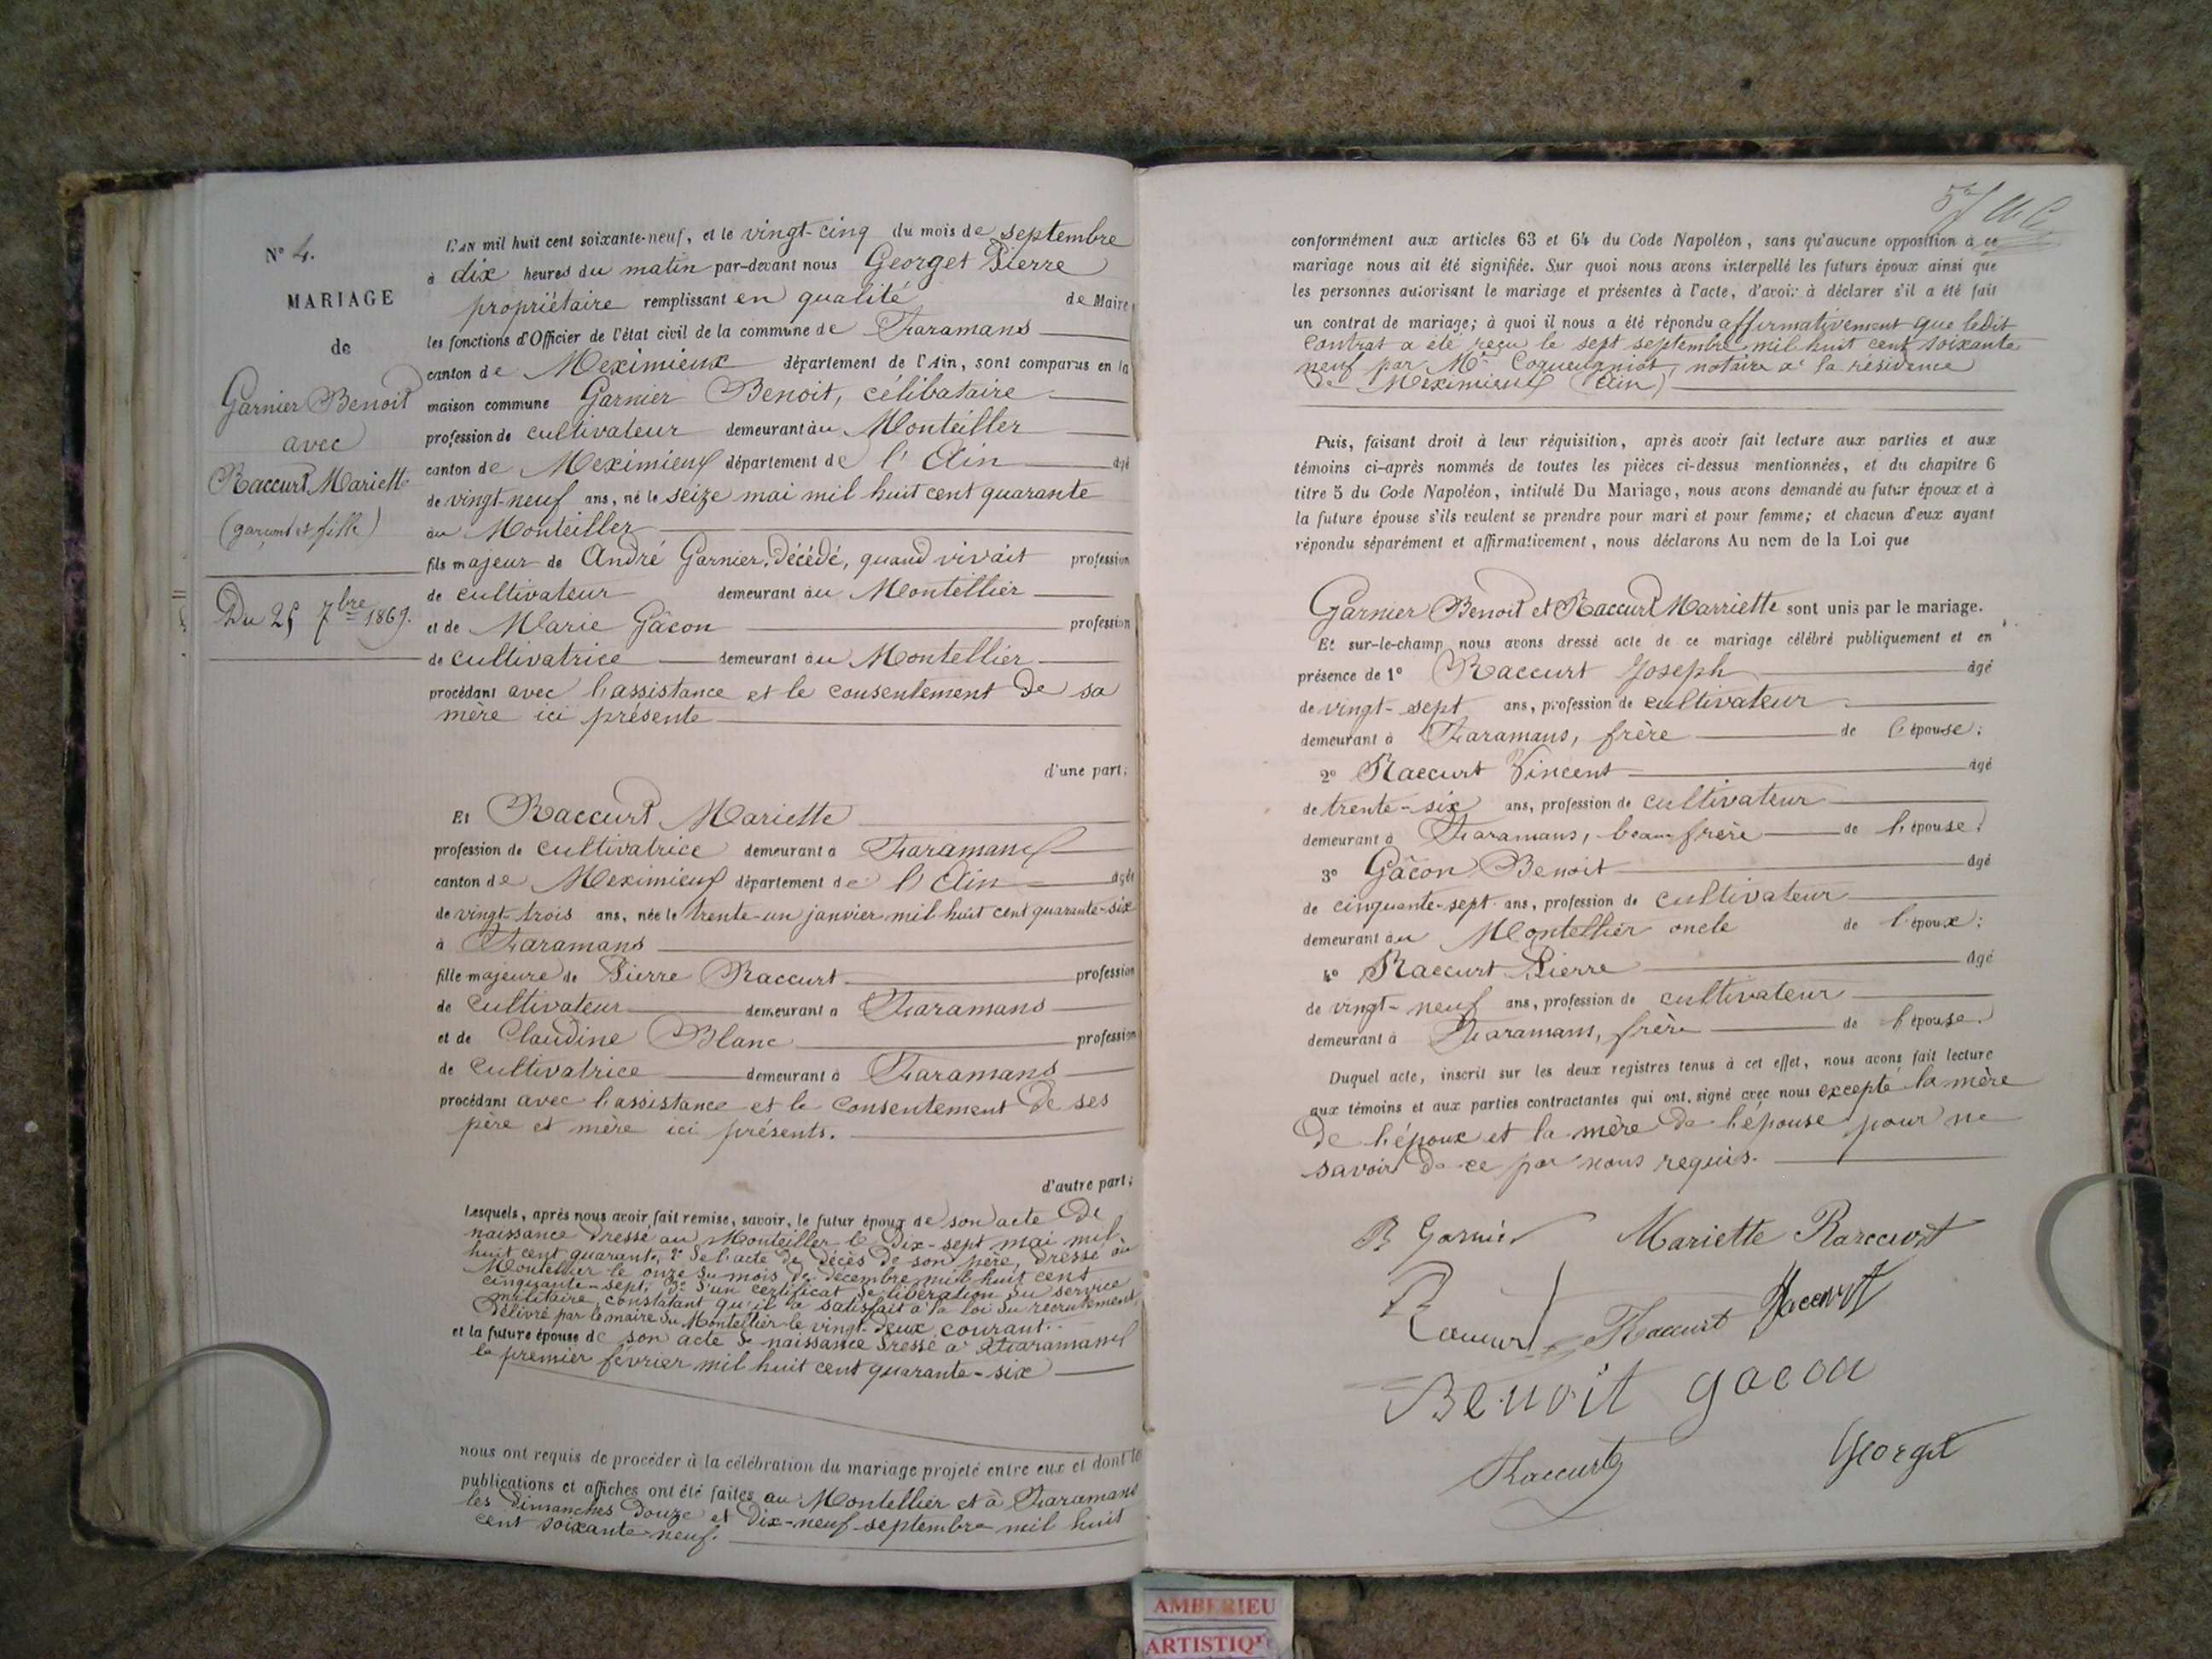 N° 4.
MARIAGE
de
Garnier Benoit
avec
Raccurt Mariette
(garçon et fille)
Du 25 7bre 1869.
L'AN mil huit cent soixante-neuf, et le vingt-cinq du mois de septembre
à dix heures du matin par-devant nous Georget Pierre
propriétaire remplissant en qualité de Maire
les fonctions d'Officier de l'état civil de la commune de Faramans
canton de Meximieux département de l'Ain, sont comparus en la
maison commune Garnier Benoit, célibataire
profession de cultivateur demeurant au Monteiller
canton de Meximieux département de l'Ain âgé
de vingt-neuf ans, né le seize mai mil huit cent quarante
au Monteiller
fils majeur de André Garnier, décédé, quand vivait profession
de cultivateur demeurant au Montellier
et de Marie Gâcon profession
de cultivatrice demeurant au Montellier
procédant avec l'assistance et le consentement de sa
mère ici présente
d'une part;
Et Raccurt Mariette
profession de cultivatrice demeurant à Faramans
canton de Meximieux département de l'Ain âgée
de vingt-trois ans, née le trente-un janvier mil huit cent quarante-six
à Faramans
fille majeure de Pierre Raccurt profession
de cultivateur demeurant à Faramans
et de Claudine Blanc profession
de cultivatrice demeurant à Faramans
procédant avec l'assistance et le consentement de ses
père et mère ici présents.
d'autre part;
Lesquels, après nous avoir fait remise, savoir, le futur époux de son acte de
naissance dressé au Monteiller le dix-sept mai mil
huit cent quarante, 2° de l'acte de décès de son père, dressé au
Montellier le onze du mois de décembre mil huit cent
cinquante-sept, 3° d'un certificat de libération du service
militaire, constatant qu'il a satisfait à la loi du recrutement
délivré par le maire du Montellier le vingt-deux courant.
et la future épouse de son acte de naissance dressé à Faramans
le premier février mil huit cent quarante-six
nous ont requis de procéder à la célébration du mariage projeté entre eux et dont le
publications et affiches ont été faites au Montellier et à Faramans
les dimanches douze et dix-neuf septembre mil huit
cent soixante neuf.
conformément aux articles 63 et 64 du Code Napoléon, sans qu'aucune opposition à ce
mariage nous ait été signifiée. Sur quoi nous avons interpellé les futurs époux ainsi que
les personnes autorisant le mariage et présentes à l'acte, d'avoir à déclarer s'il a été fait
un contrat de mariage; à quoi il nous a été répondu affirmativement que ledit
contrat a été reçu le sept septembre mil huit cent soixante
neuf par Me Coqueugniot, notaire à la résidence
de Meximieux (Ain)
Puis, faisant droit à leur réquisition, après avoir fait lecture aux parties et aux
témoins ci-après nommés de toutes les pièces ci-dessus mentionnées, et du chapitre 6
titre 5 du Code Napoléon, intitulé Du Mariage, nous avons demandé au futur époux et à
la future épouse s'ils veulent se prendre pour mari et pour femme; et chacun d'eux ayant
répondu séparément et affirmativement, nous déclarons Au nom de la Loi que
Garnier Benoit et Raccurt Marriette sont unis par le mariage.
Et sur-le-champ nous avons dressé acte de ce mariage célébré publiquement et en
présence de 1° Raccurt Joseph âgé
de vingt-sept ans, profession de cultivateur
demeurant à Faramans, frère de l'épouse;
2° Raccurt Vincent âgé
de trente-six ans, profession de cultivateur
demeurant à Faramans, beau frère de l'épouse;
3° Gâcon Benoit âgé
de cinquante-sept ans, profession de cultivateur
demeurant au Montellier oncle de l'époux;
4° Raccurt Pierre âgé
de vingt-neuf ans, profession de cultivateur
demeurant à Faramans, frère de l'épouse.
Duquel acte, inscrit sur les deux registres tenus à cet effet, nous avons fait lecture
aux témoins et aux parties contractantes qui ont signé avec nous excepté la mère
de l'époux et la mère de l'épouse pour ne
savoir de ce par nous requis.
B Garnier Mariette Raccurt
Raccurt Raccurt Raccurt
Benoit gacon
Raccurt Georget
AMBERIEU
ARTISTIQU